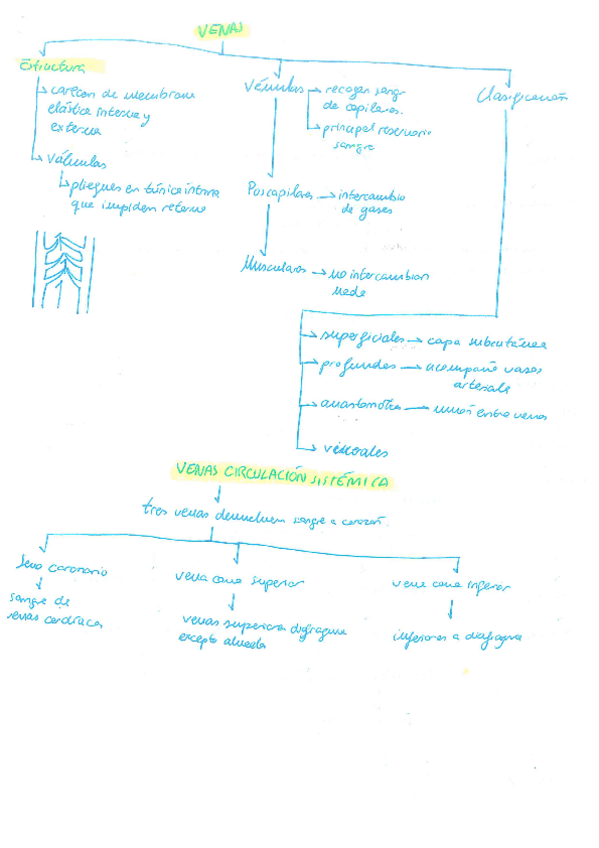 VENAS
Estructura
carecen de membrana
elástica interna y
externa
Válvulas
pliegues en túnica íntima
que impiden retorno
Vénulas
recogen sangre
de capilares.
principal reservorio
sangre
Poscapilares
intercambio
de gases
Musculares
no intercambian
nada
Clasificación
superficiales
capa subcutánea
profundas
acompaña vasos
arteriales
anastomótica
unión entre venas
viscerales
VENAS CIRCULACIÓN SISTÉMICA
tres venas devuelven sangre a corazón.
Seno coronario
sangre de
venas cardíaca
vena cava superior
venas superiora diafragma
excepto
vena cava inferior
inferiores a diafragma